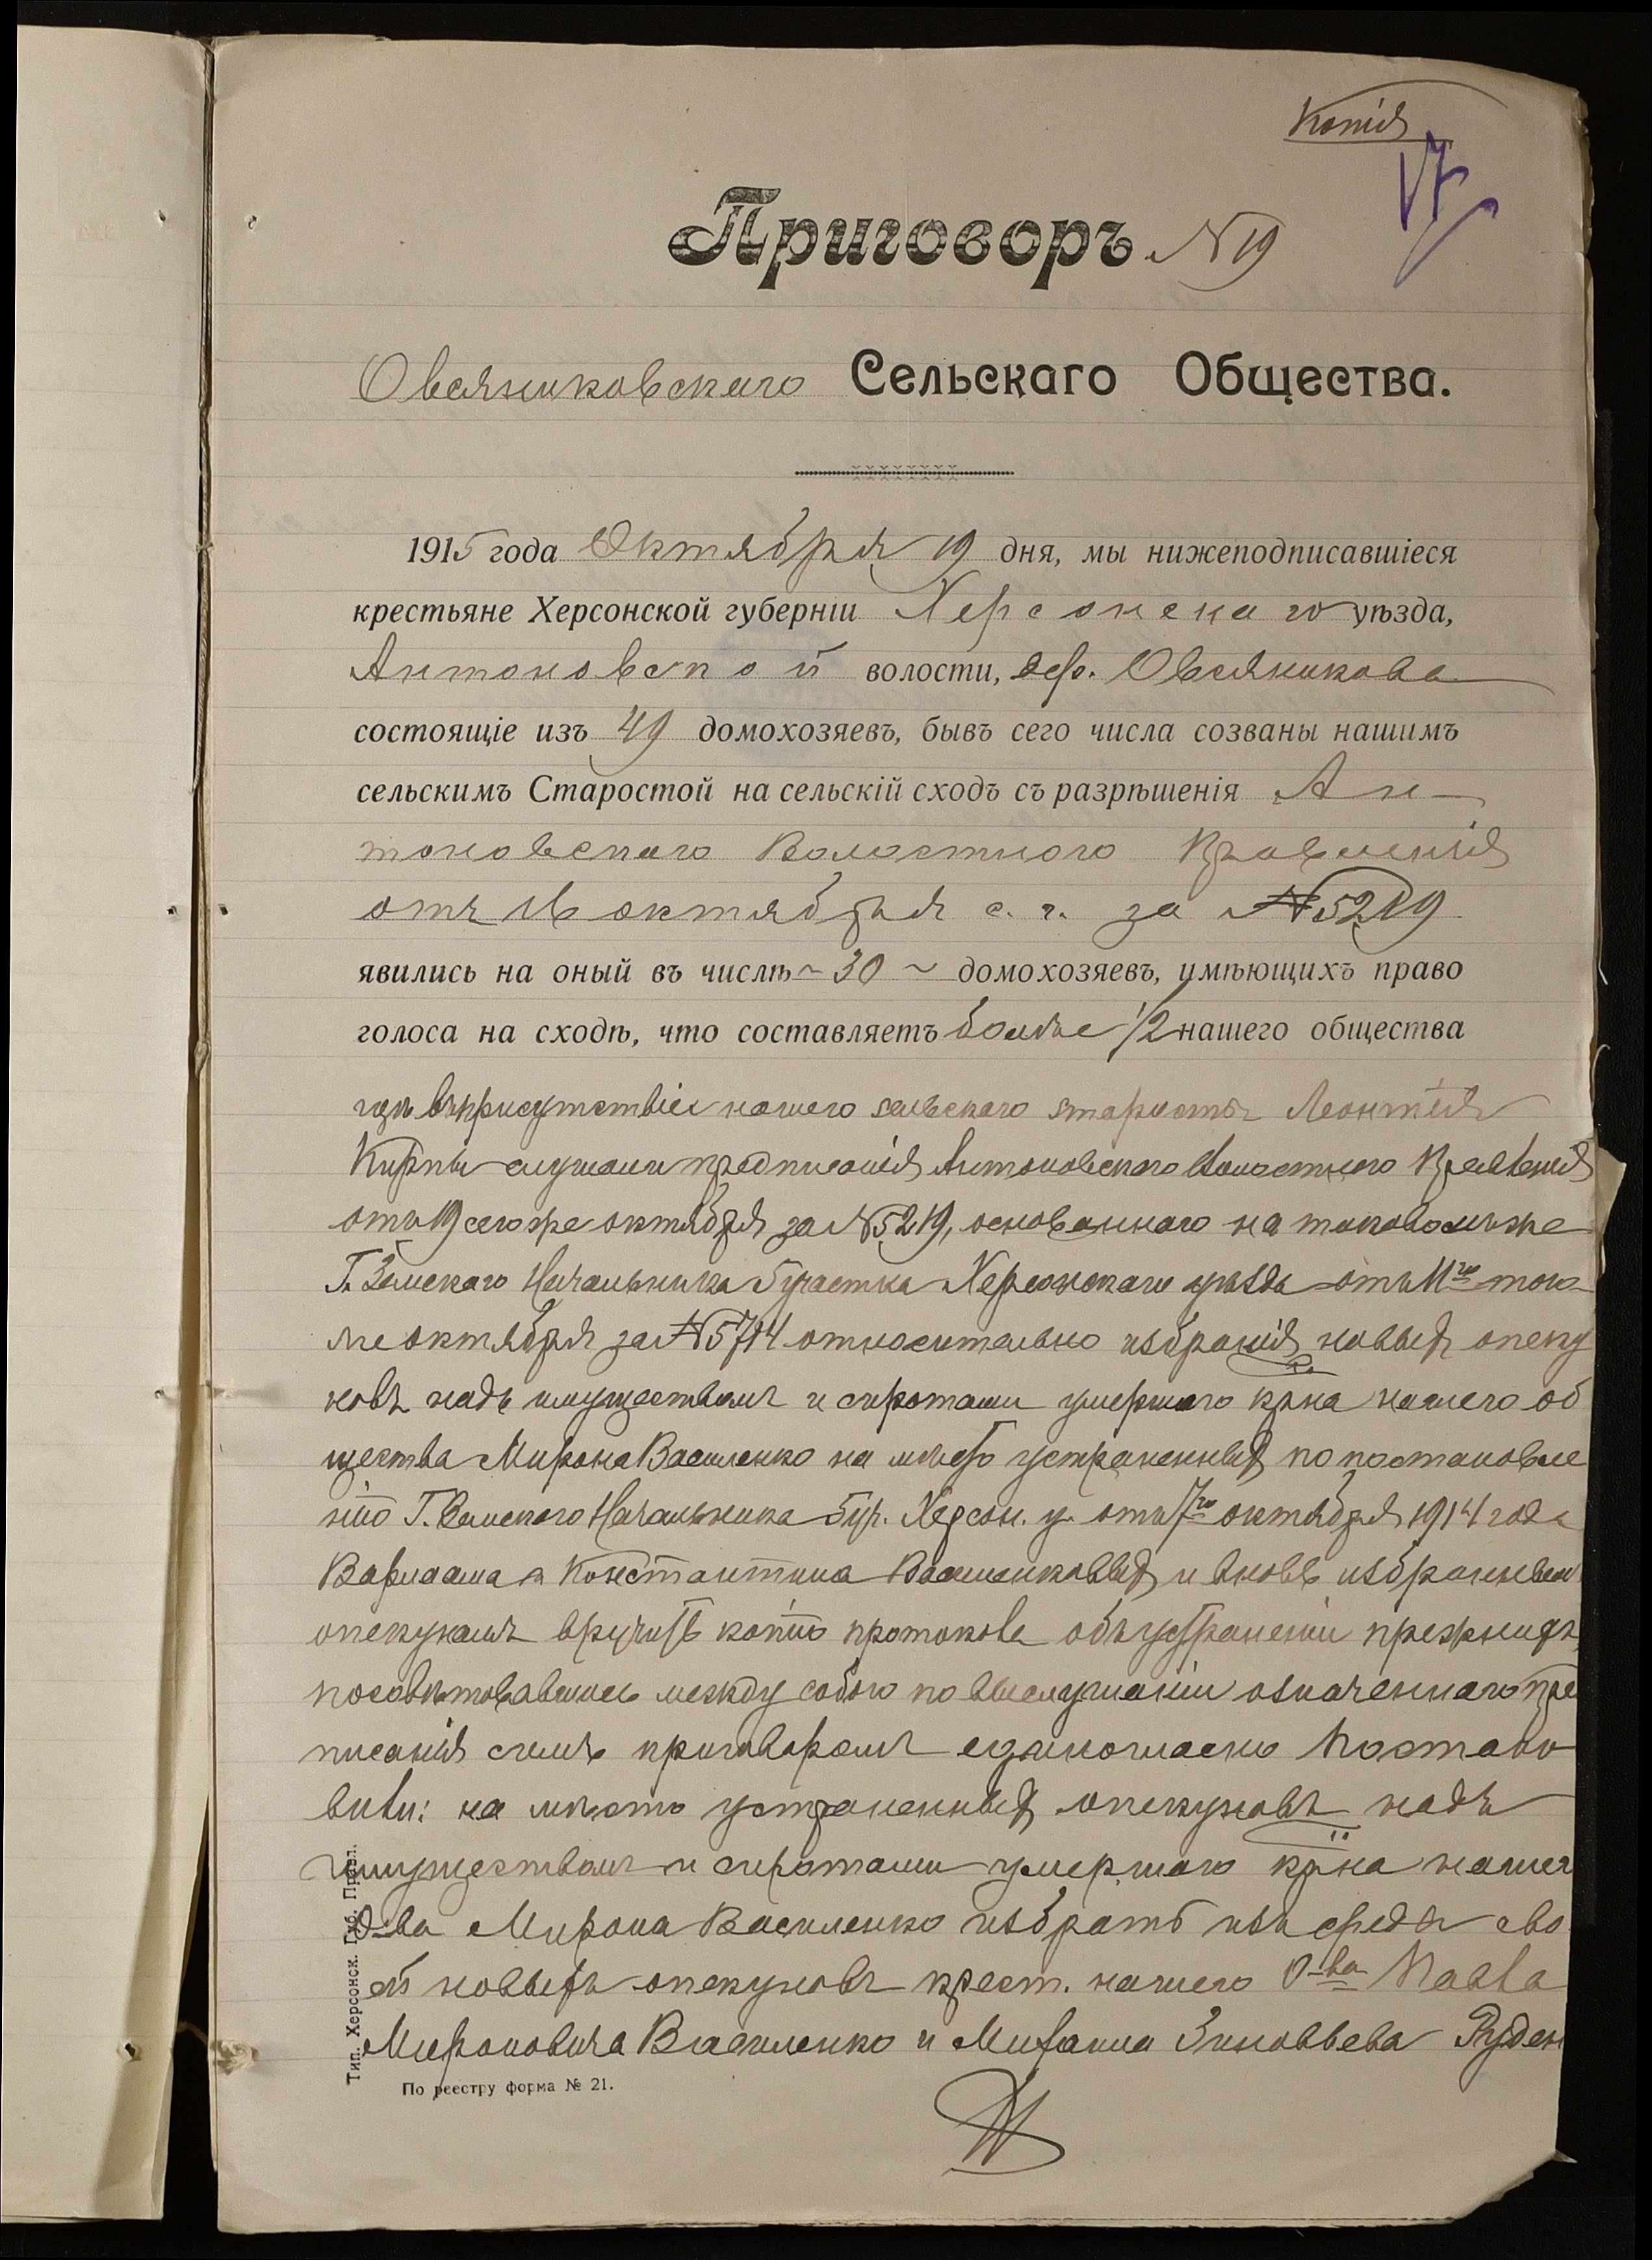 Копія
17
Приговоръ N 19
Овсяниковскаго Сельскаго Общества.
1915 года Октября 19 дня, мы нижеподписавшіеся
крестьяне Херсонской губерніи Херсонскаго уѣзда,
Антоновской волости, дер. Овсяникова
состоящіе изъ 49 домохозяевъ, бывъ сего числа созваны нашимъ
сельскимъ Старостой на сельскій сходъ съ разрѣшенія Ан-
тоновскаго Волостного Правленія
отъ октября с. г. за N 5219
явились на оный въ числѣ ~ 30 ~ домохозяевъ, имѣющихъ право
голоса на сходѣ, что составляетъ болѣе 1/2 нашего общества
гдѣ въ присутствіи нашего сельскаго старосты Леонтія
Кирпы слушали предписанія Антоновскаго Волостного Правленія
отъ 19 сего же октября за N 5219, основаннаго на таковомъ же
Г. Земскаго Начальника 5 участка Херсонскаго уѣзда отъ 11го того
же октября за N 5714 относительно избранія новыхъ опеку
новъ надъ имуществомъ и сиротами умершаго кр-на нашего об
щества Мирона Василенко на мѣсто устраненныхъ по постановле
нію Г. Земскаго Начальника 5 уч. Херсон. у. отъ 7го октября 1914 года
Варлаама и Константина Василенковыхъ и вновь избраннымъ
опекунамъ вручить копію протокола объ устраненіи прежнихъ,
посовѣтовавшись между собою по выслушаніи означеннаго пред
писанія симъ приговоромъ единогласно Постано
вили: на мѣсто устраненныхъ опекуновъ надъ
имуществомъ и сиротами умершаго кр-на нашего
О-ва Мирона Василенко избрать изъ среды сво
ей новыхъ опекуновъ крест. нашего О-ва Павла
Мироновича Василенко и Михаила Зиновьева Руден
Тип. Херсонск. Губ. Правл.
По реестру форма № 21.